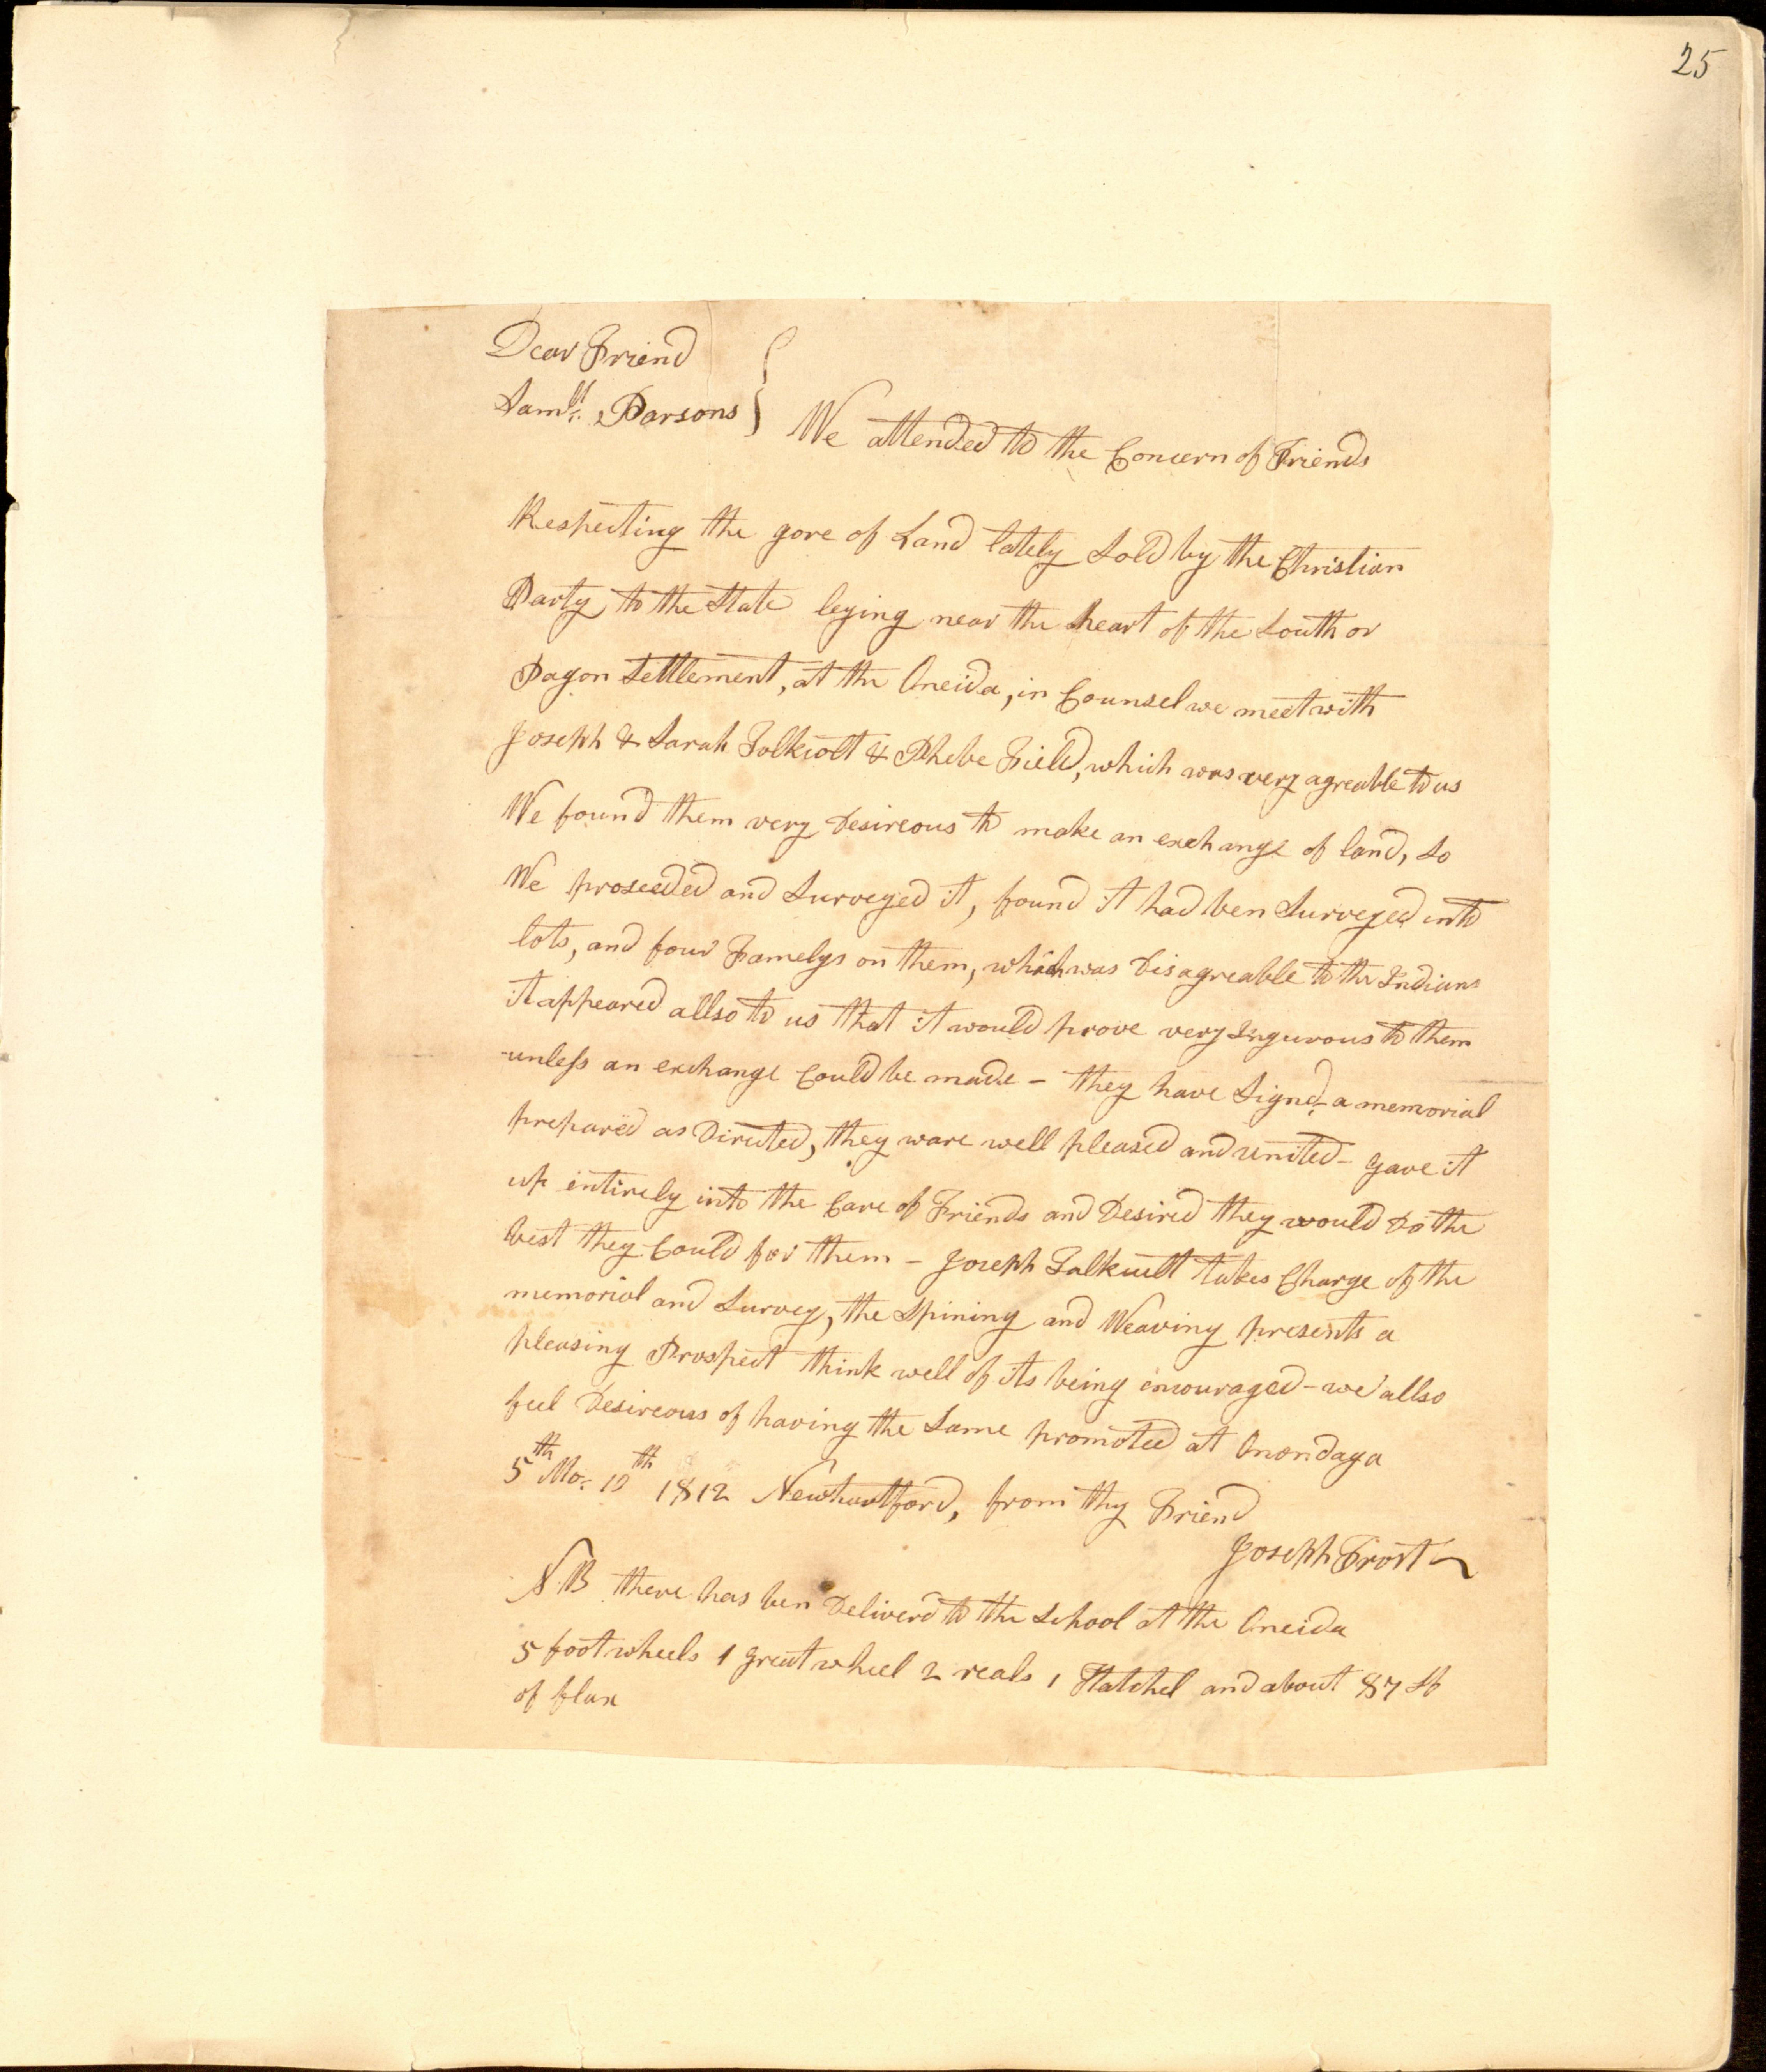 25
Dear Friend
Saml. Parsons
We attended to the Concern of Friends
Respecting the gore of Land lately Sold by the Christian
Party to the State leying near the heart of the South or
Pagon Settlement, at the Oneida, in Counsel we meet with
Joseph & Sarah Talkcott & Phebe Field, which was very agreable to us
We found them very Desireous to make an exchange of land, So
We proseeded and Surveyed it, found it had ben Surveyed into
lots, and four Famelys on them, which was Disagreable to the Indians
it appeared allso to us that it would prove very Ingurous to them
unless an exchange Could be made - they have Signd a memorial
prepared as Directed, they ware well pleased and united - gave it
up intirely into the Care of Friends and Desired they would Do the
best they Could for them - Joseph Talkcutt takes Charge of the
memorial and Survey, the Spining and Weaving presents a
pleasing Prospect think well of its being incouraged - we allso
feel Desireous of having the Same promoted at Onondaga
5th Mo. 10th 1812 Newhartford, from thy Friend
Joseph Frost
NB there has ben Deliverd to the School at the Oneida
5 foot wheels 1 great wheel 2 reals 1 Hatchel and about 87 lb
of flax